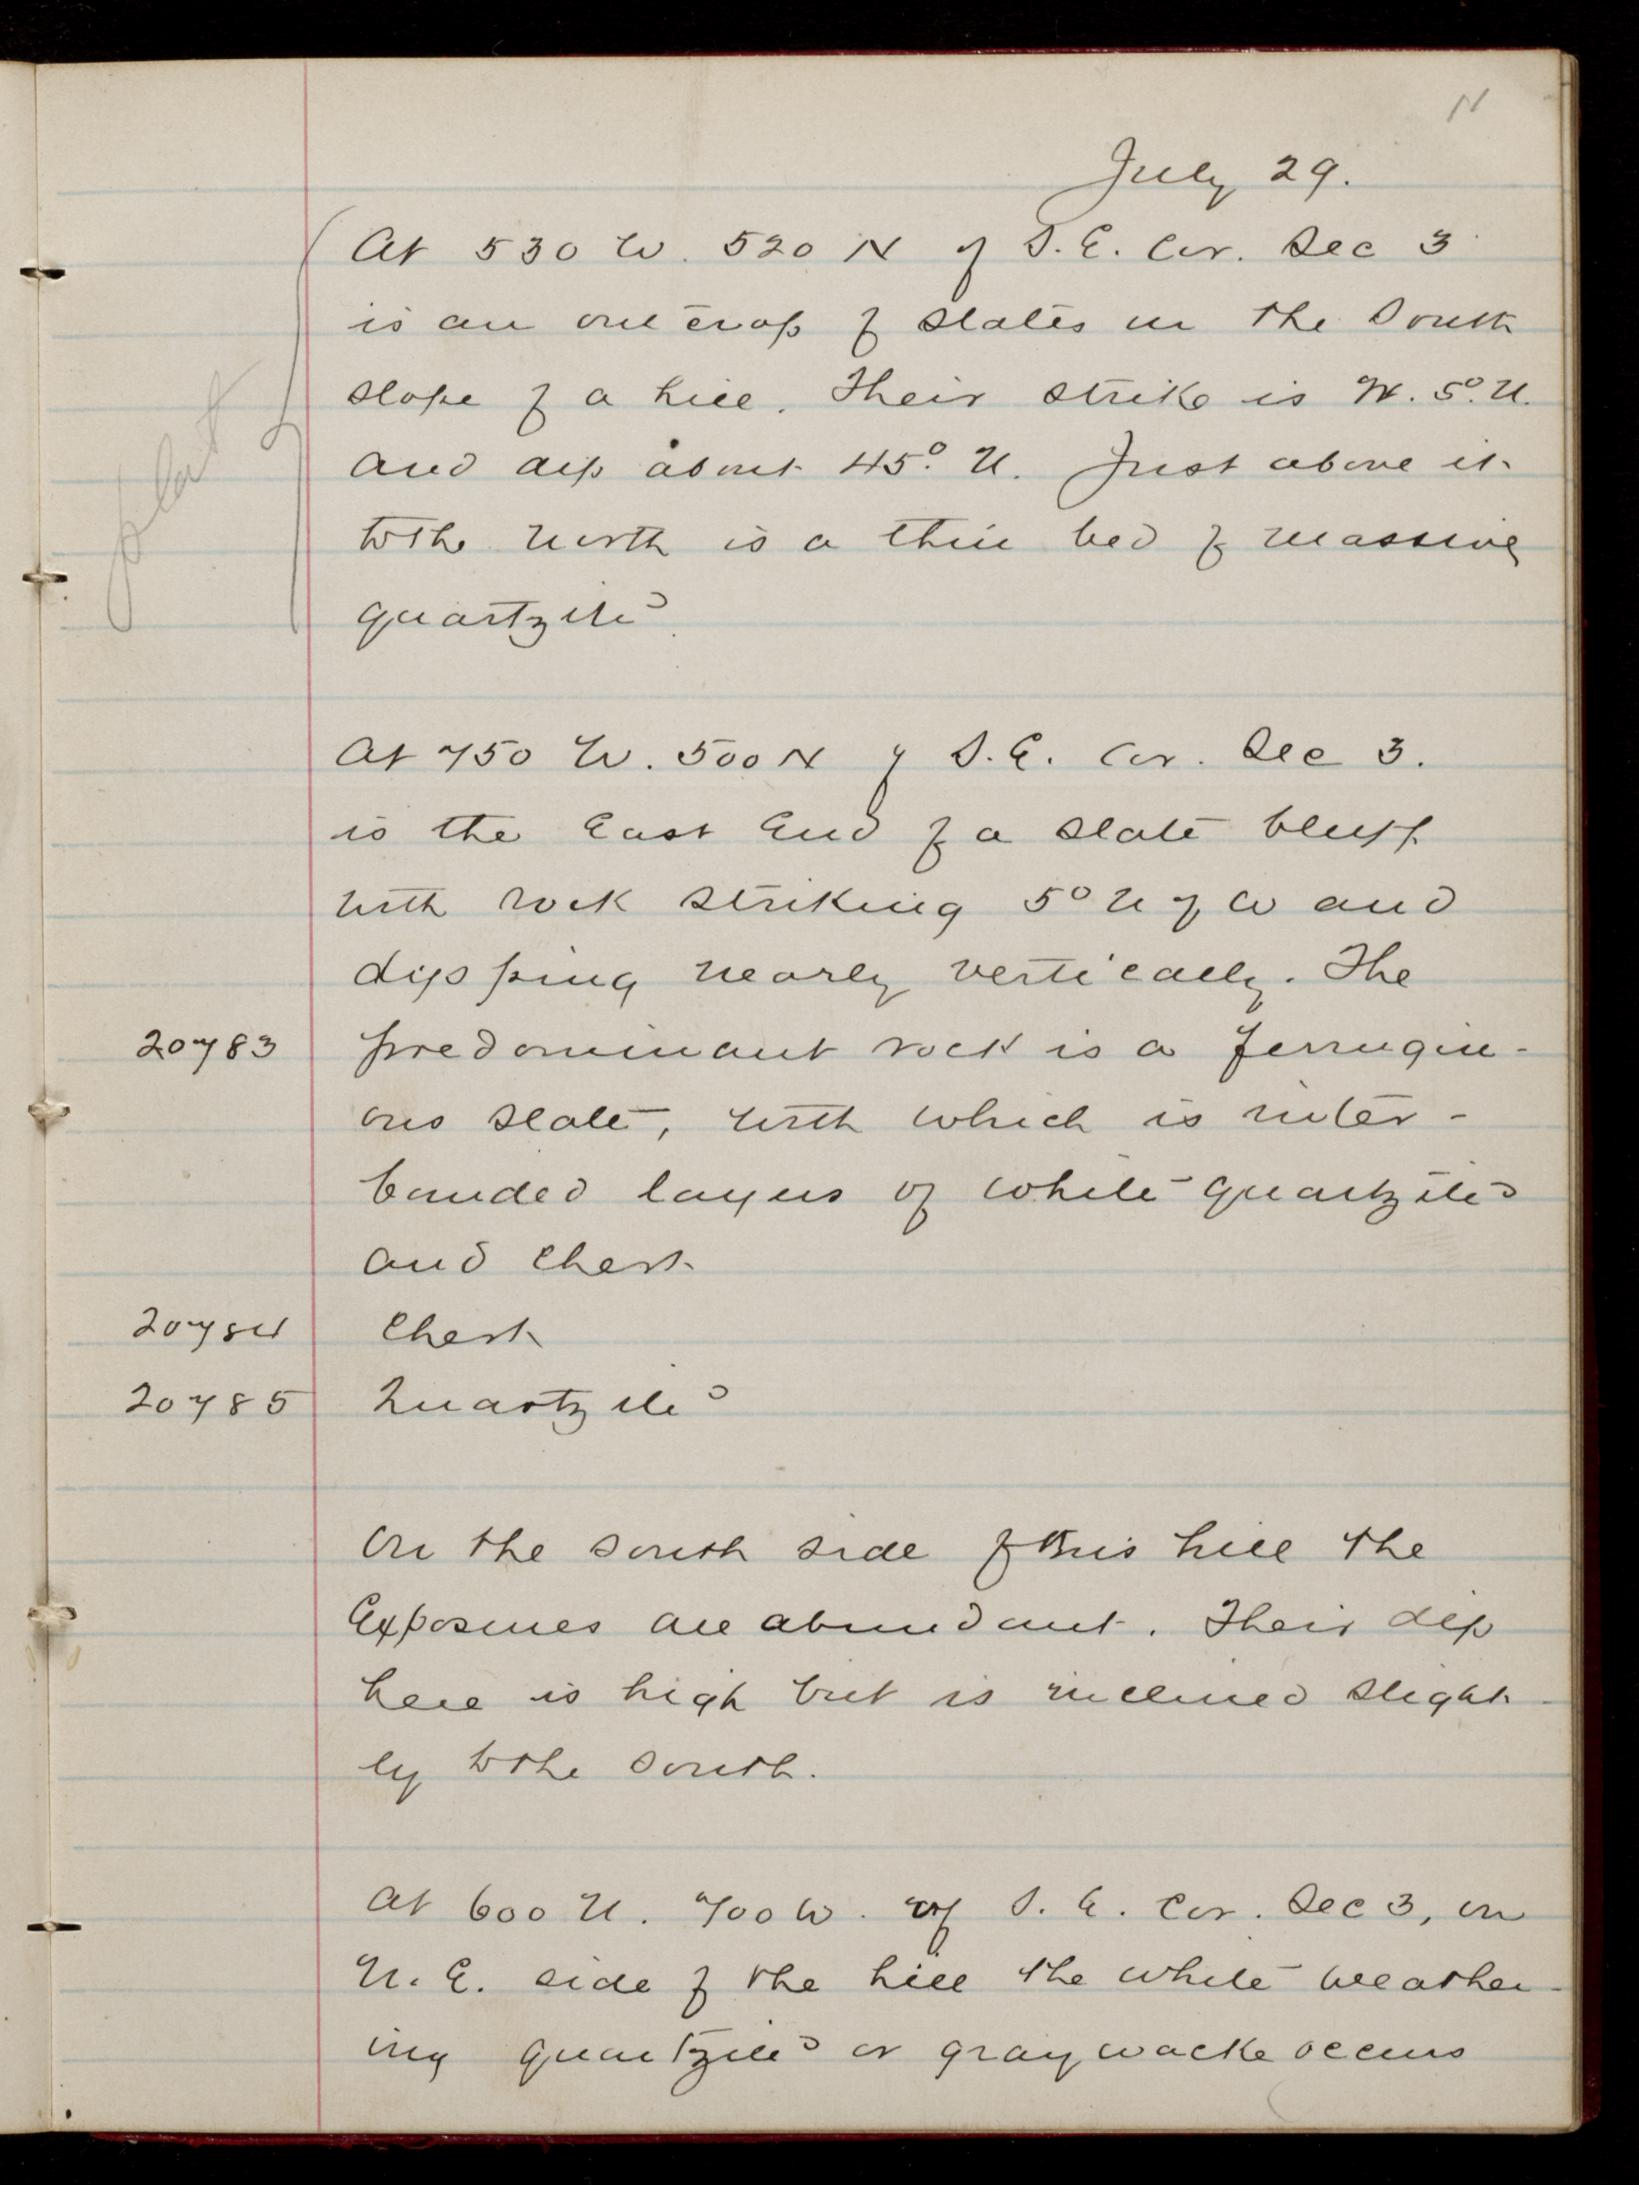 11
July 29.
At 530 W. 520 N of S.E. Cor. Sec 3
is an out crop of slates in the South
slope of a hill. Their strike is W. 5° N.
and dip about 45° N. Just above it
to the north is a thin bed of massive
quartzite
plat
At 750 W. 500 N of S.E. Cor. Sec 3.
is the East End of a slate bluff
with rock striking 5° N of W and
dipping nearly vertically. The
20783 predominant rock is a ferrugin-
ous slate, with which is inter-
banded layers of white quartzite
and chert
20784 Chert
20785 Quartzite
On the south side of this hill the
Exposures are abundant. Their dip
here is high but is inclined slight-
ly to the south.
At 600 N. 700 W. of S. E. Cor. Sec 3, on
N. E. side of the hill the white weather-
ing quartzite or graywacke occurs